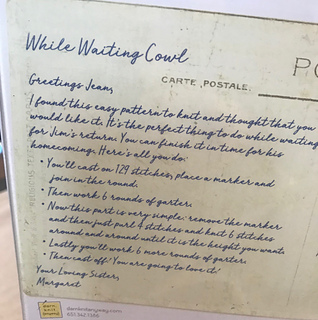 While Waiting Cowl
CARTE POSTALE.
PO
Greetings Jean,
I found this easy pattern to knit and thought that you
would like it. It's the perfect thing to do while waiting
for Jim's return. You can finish it in time for his
homecoming. Here's all you do:
• You'll cast on 129 stitches, place a marker and
join in the round.
• Then work 6 rounds of garter.
• Now this part is very simple: remove the marker
and then just purl 4 stitches and knit 6 stitches
around and around until it is the height you want.
• Lastly you'll work 6 more rounds of garter.
• Then cast off! You are going to love it!
Your Loving Sister,
Margaret